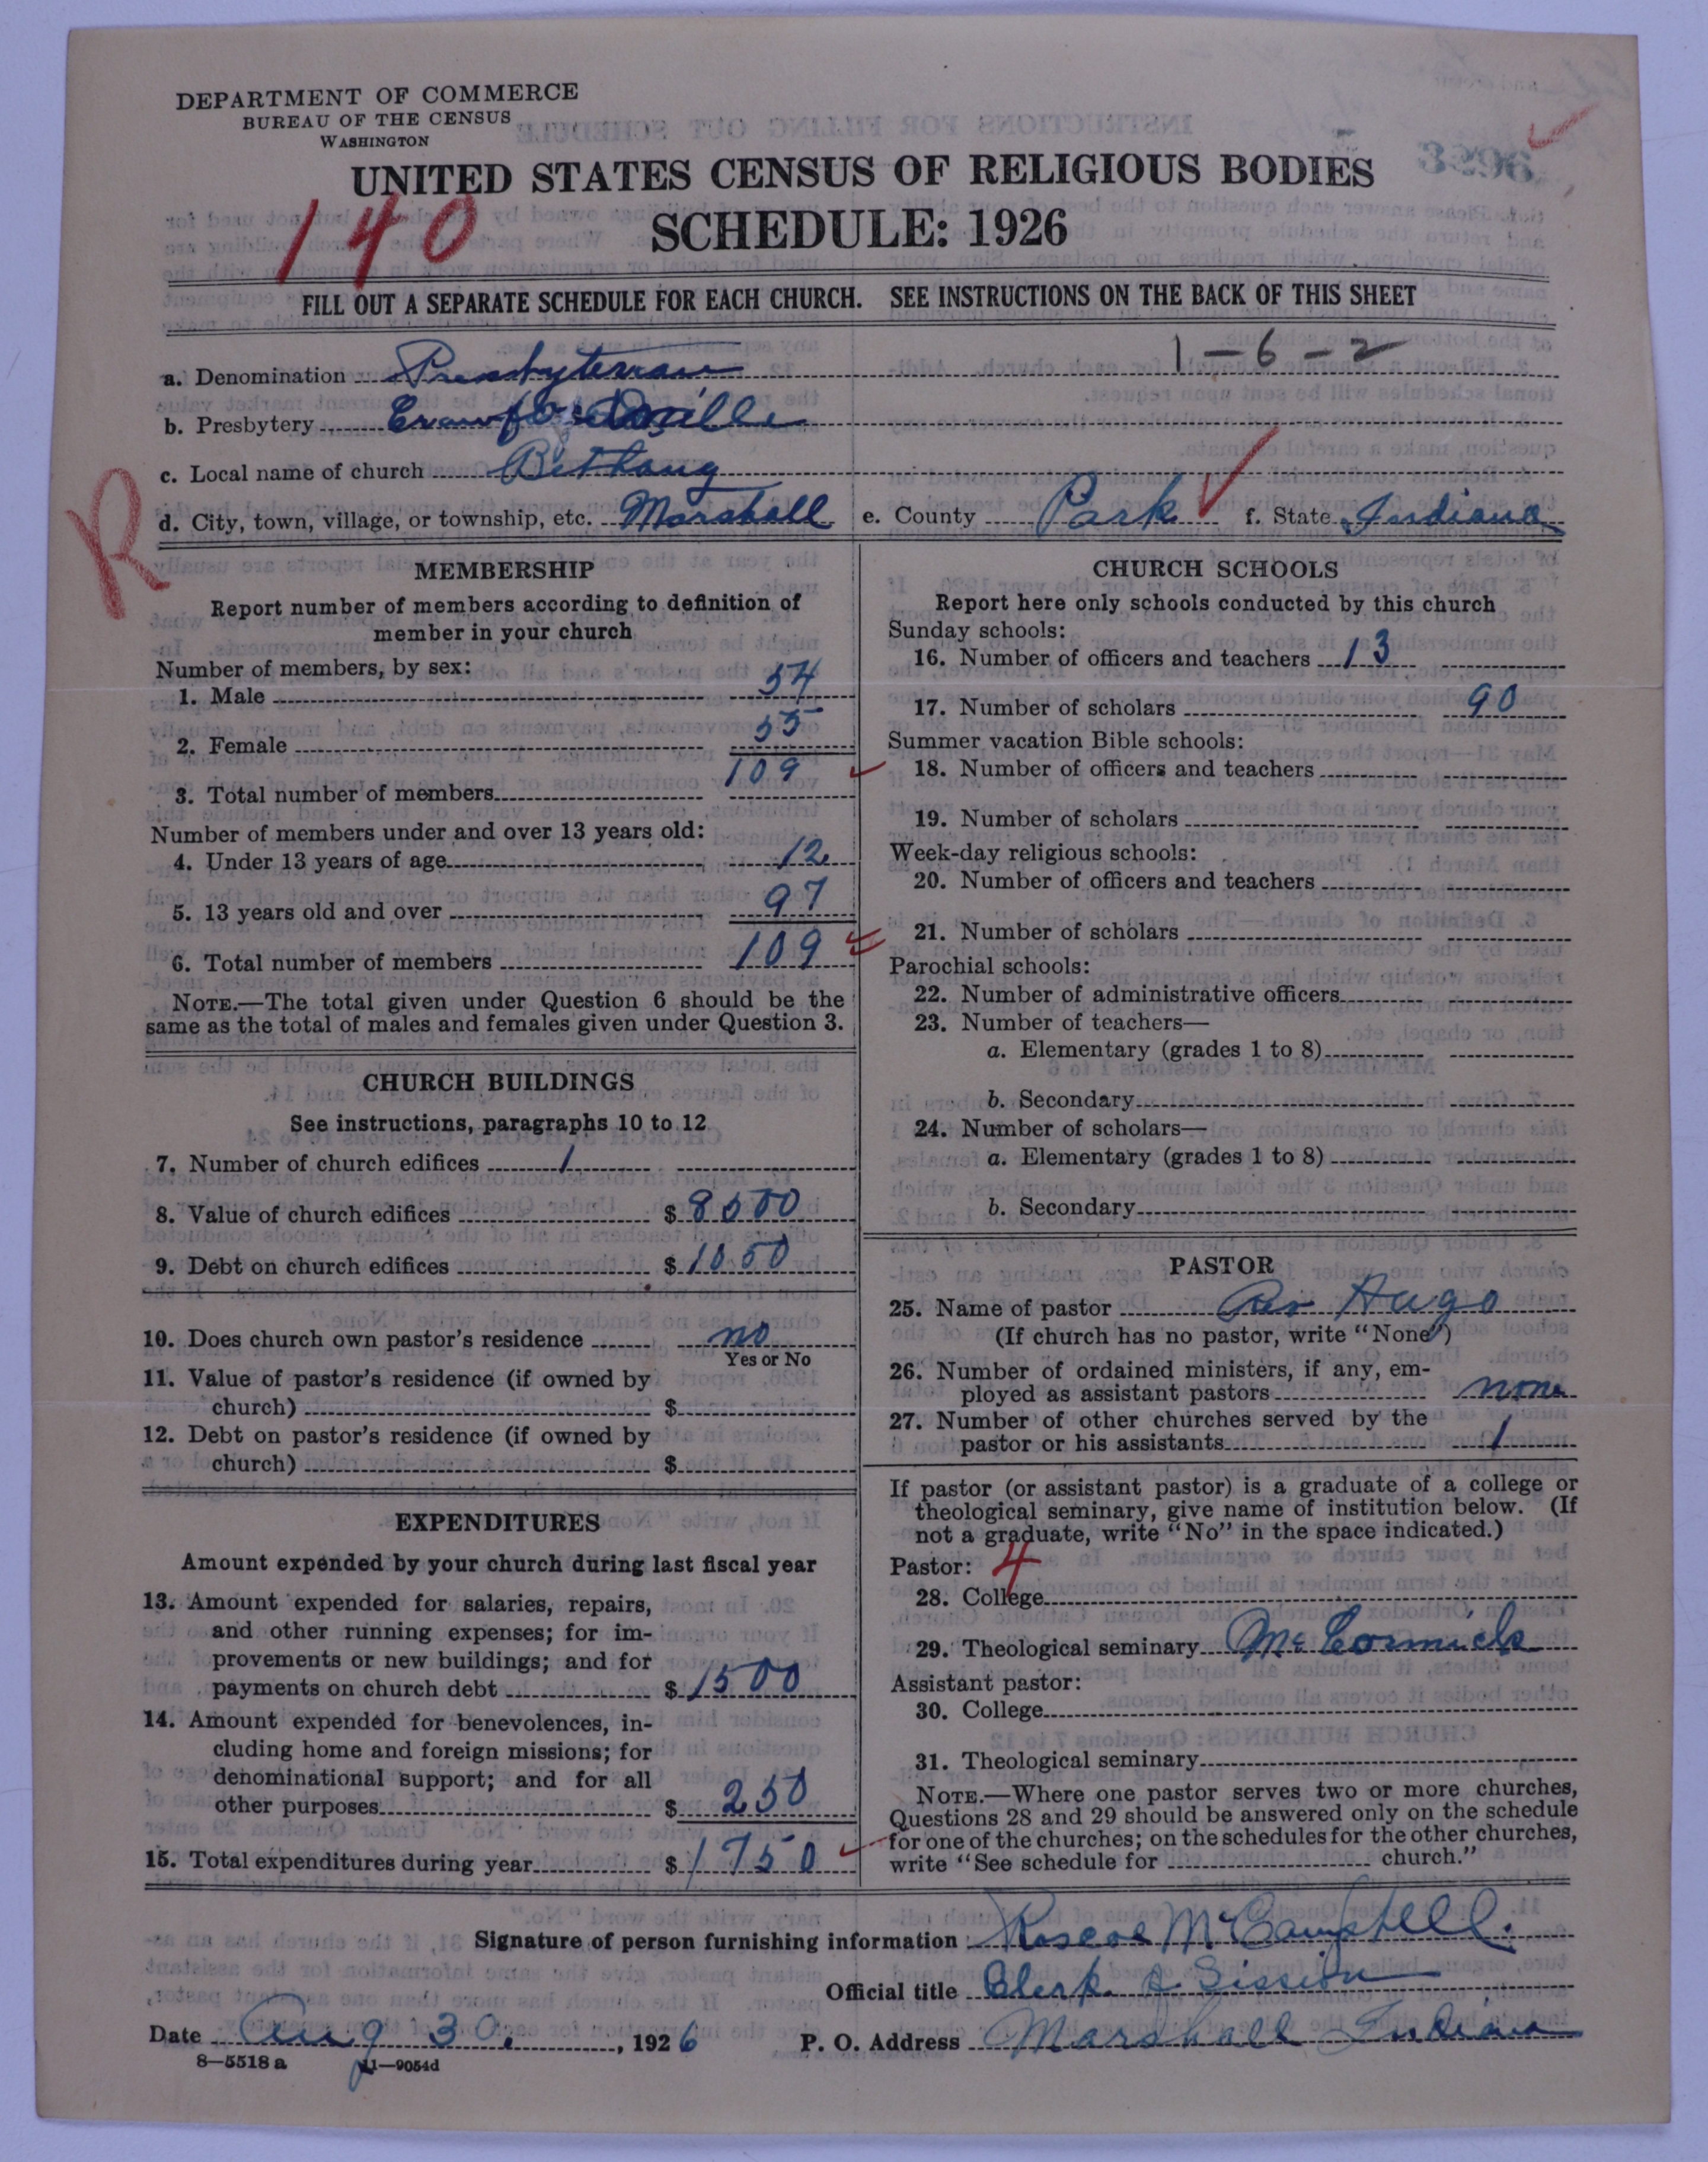 DEPARTMENT OF COMMERCE
BUREAU OF THE CENSUS
WASHINGTON
UNITED STATES CENSUS OF RELIGIOUS BODIES
SCHEDULE: 1926
140
FILL OUT A SEPARATE SCHEDULE FOR EACH CHURCH. SEE INSTRUCTIONS ON THE BACK OF THIS SHEET
1-6-2
a. Denomination Presbyterian
b. Presbytery Crawfordsville
c. Local name of church Bethany
d. City, town, village, or township, etc. Marshall e. County Park f. State Indiana
R
MEMBERSHIP
Report number of members according to definition of
member in your church
Number of members, by sex:
1. Male 54
2. Female 55
3. Total number of members 109
Number of members under and over 13 years old:
4. Under 13 years of age 12
5. 13 years old and over 97
6. Total number of members 109
NOTE.—The total given under Question 6 should be the
same as the total of males and females given under Question 3.
CHURCH BUILDINGS
See instructions, paragraphs 10 to 12
7. Number of church edifices 1
8. Value of church edifices $ 8500
9. Debt on church edifices $ 1050
10. Does church own pastor's residence no
Yes or No
11. Value of pastor's residence (if owned by
church) $
12. Debt on pastor's residence (if owned by
church) $
EXPENDITURES
Amount expended by your church during last fiscal year
13. Amount expended for salaries, repairs,
and other running expenses; for im-
provements or new buildings; and for
payments on church debt $ 1500
14. Amount expended for benevolences, in-
cluding home and foreign missions; for
denominational support; and for all
other purposes $ 250
15. Total expenditures during year $ 1750
CHURCH SCHOOLS
Report here only schools conducted by this church
Sunday schools:
16. Number of officers and teachers 13
17. Number of scholars 90
Summer vacation Bible schools:
18. Number of officers and teachers
19. Number of scholars
Week-day religious schools:
20. Number of officers and teachers
21. Number of scholars
Parochial schools:
22. Number of administrative officers
23. Number of teachers—
a. Elementary (grades 1 to 8)
b. Secondary
24. Number of scholars—
a. Elementary (grades 1 to 8)
b. Secondary
PASTOR
25. Name of pastor Rev Hugo
(If church has no pastor, write "None")
26. Number of ordained ministers, if any, em-
ployed as assistant pastors none
27. Number of other churches served by the
pastor or his assistants 1
If pastor (or assistant pastor) is a graduate of a college or
theological seminary, give name of institution below. (If
not a graduate, write "No" in the space indicated.)
Pastor: 4
28. College
29. Theological seminary McCormick
Assistant pastor:
30. College
31. Theological seminary
NOTE.—Where one pastor serves two or more churches,
Questions 28 and 29 should be answered only on the schedule
for one of the churches; on the schedules for the other churches,
write "See schedule for church."
Signature of person furnishing information Roscoe McCampbell.
Official title Clerk Session
Date Aug 30. , 1926 P. O. Address Marshall Indiana
8—5518 a 11—9054d